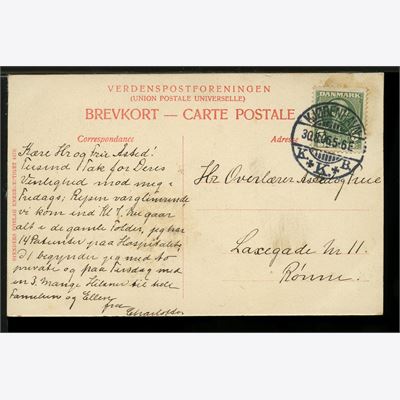 VERDENSPOSTFORENINGEN
(UNION POSTALE UNIVERSELLE)
BREVKORT — CARTE POSTALE
Correspondance
Adresse
DANMARK
KJØBENHAVN
5-6E
K. K. B
Kære Hr og Fru Asted!
Tusind Tak for Deres
Venlighed mod mig i
Fredags; Rejsen var glimrende
vi kom ind Kl 7.
alt i de gamle Folder, jeg har
14 Patienter paa Hospitalet,
begynder jeg med to
private og paa Tirsdag med
en 3. Mange Hilsner til hele
Familien og Ellen
fra
Charlotte
Hr Overlærer Asted og Frue
Laxegade Nr 11.
Rønne.